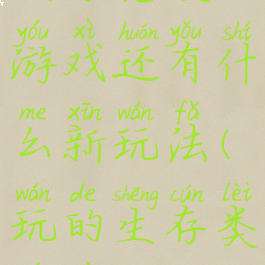 yóu xì huán yǒu shí
游戏还有什
me xīn wán fǎ
么新玩法(
wán de shēng cún lèi
玩的生存类